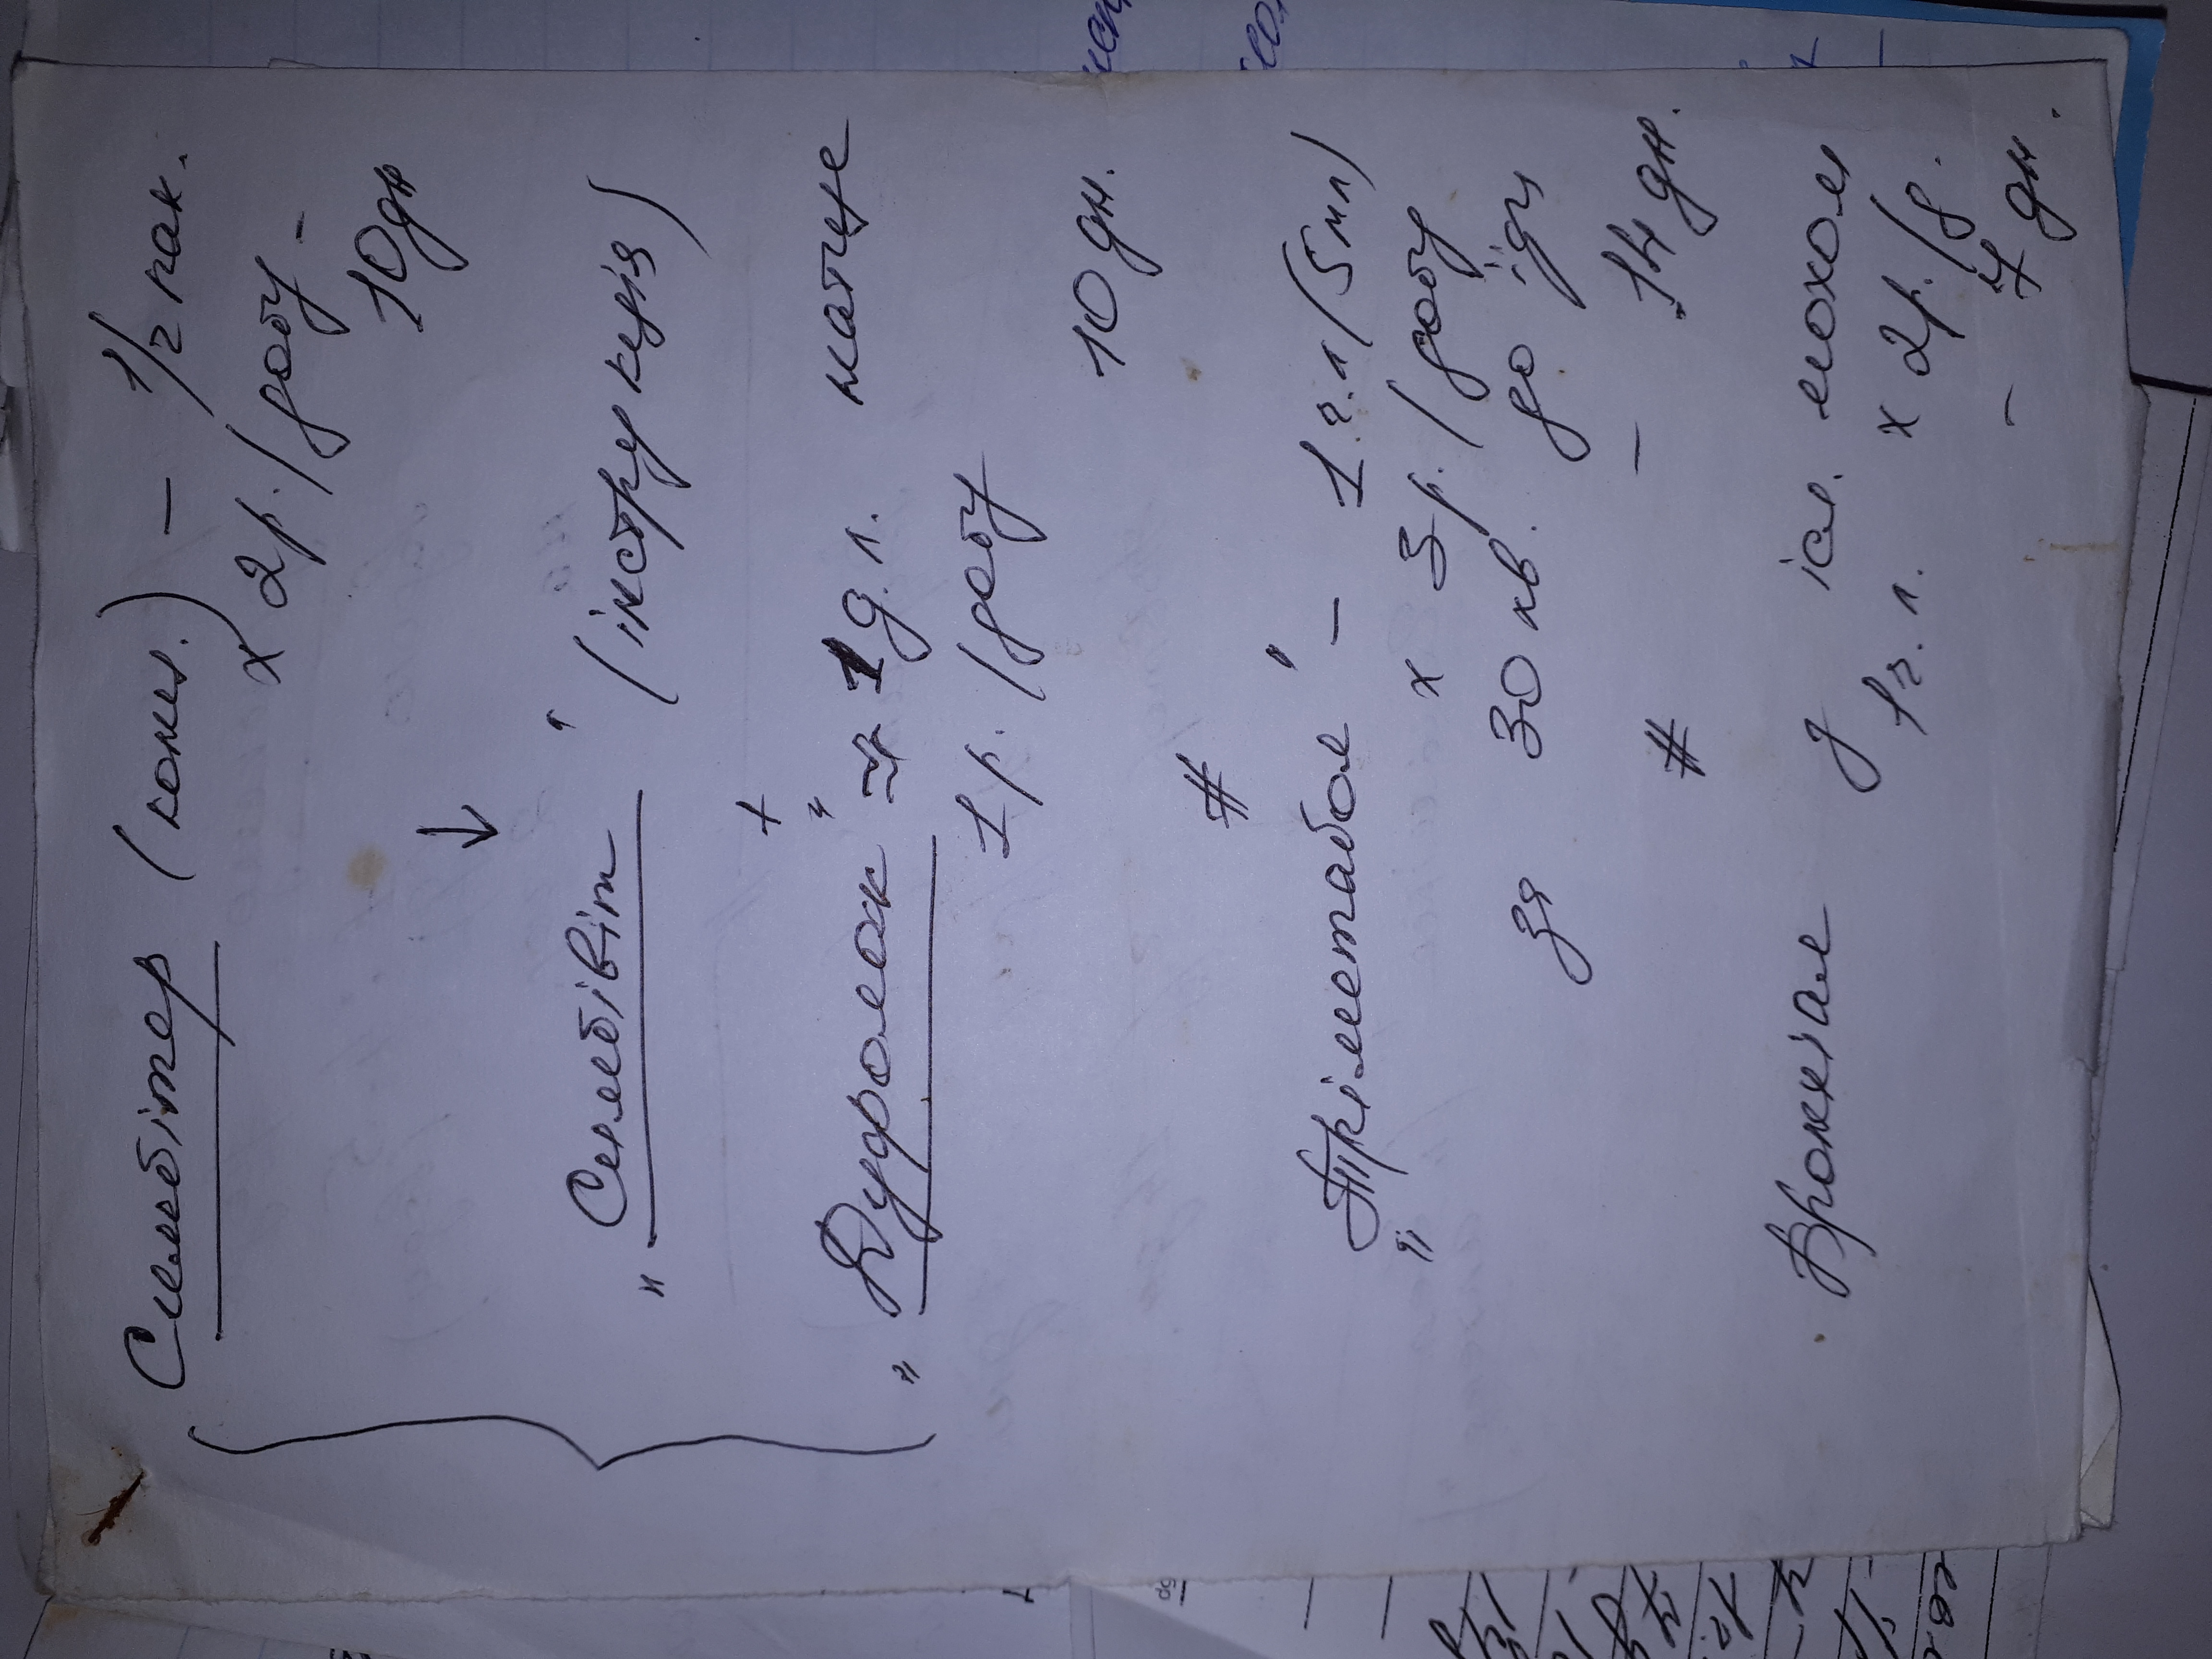 Симбітер (конц.) – 1/2 пак.
х 2 р. / добу –
10 дн
↓
„Симбівіт" (інструкція)
+
„Дуфолак" 1 д. л. натще
1 р. / добу
10 дн.
#
„Тріметабол" – 1 ч. л (5 мл)
х 3 р. / добу
за 30 хв. до їди
– 14 дн.
#
Бронхіал з ісл. мохом
1 ч. л. х 2 р. / д.
– 7 дн.